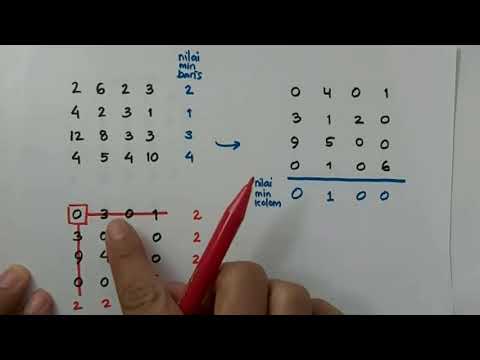 nilai
min
baris
2 6 2 3 2
4 2 3 1 1
12 8 3 3 3
4 5 4 10 4
0 4 0 1
3 1 2 0
9 5 0 0
0 1 0 6
nilai
min
kolom
0 1 0 0
0 3 0 1 2
3 0 0 2
9 4 0 2
0 0
2 2